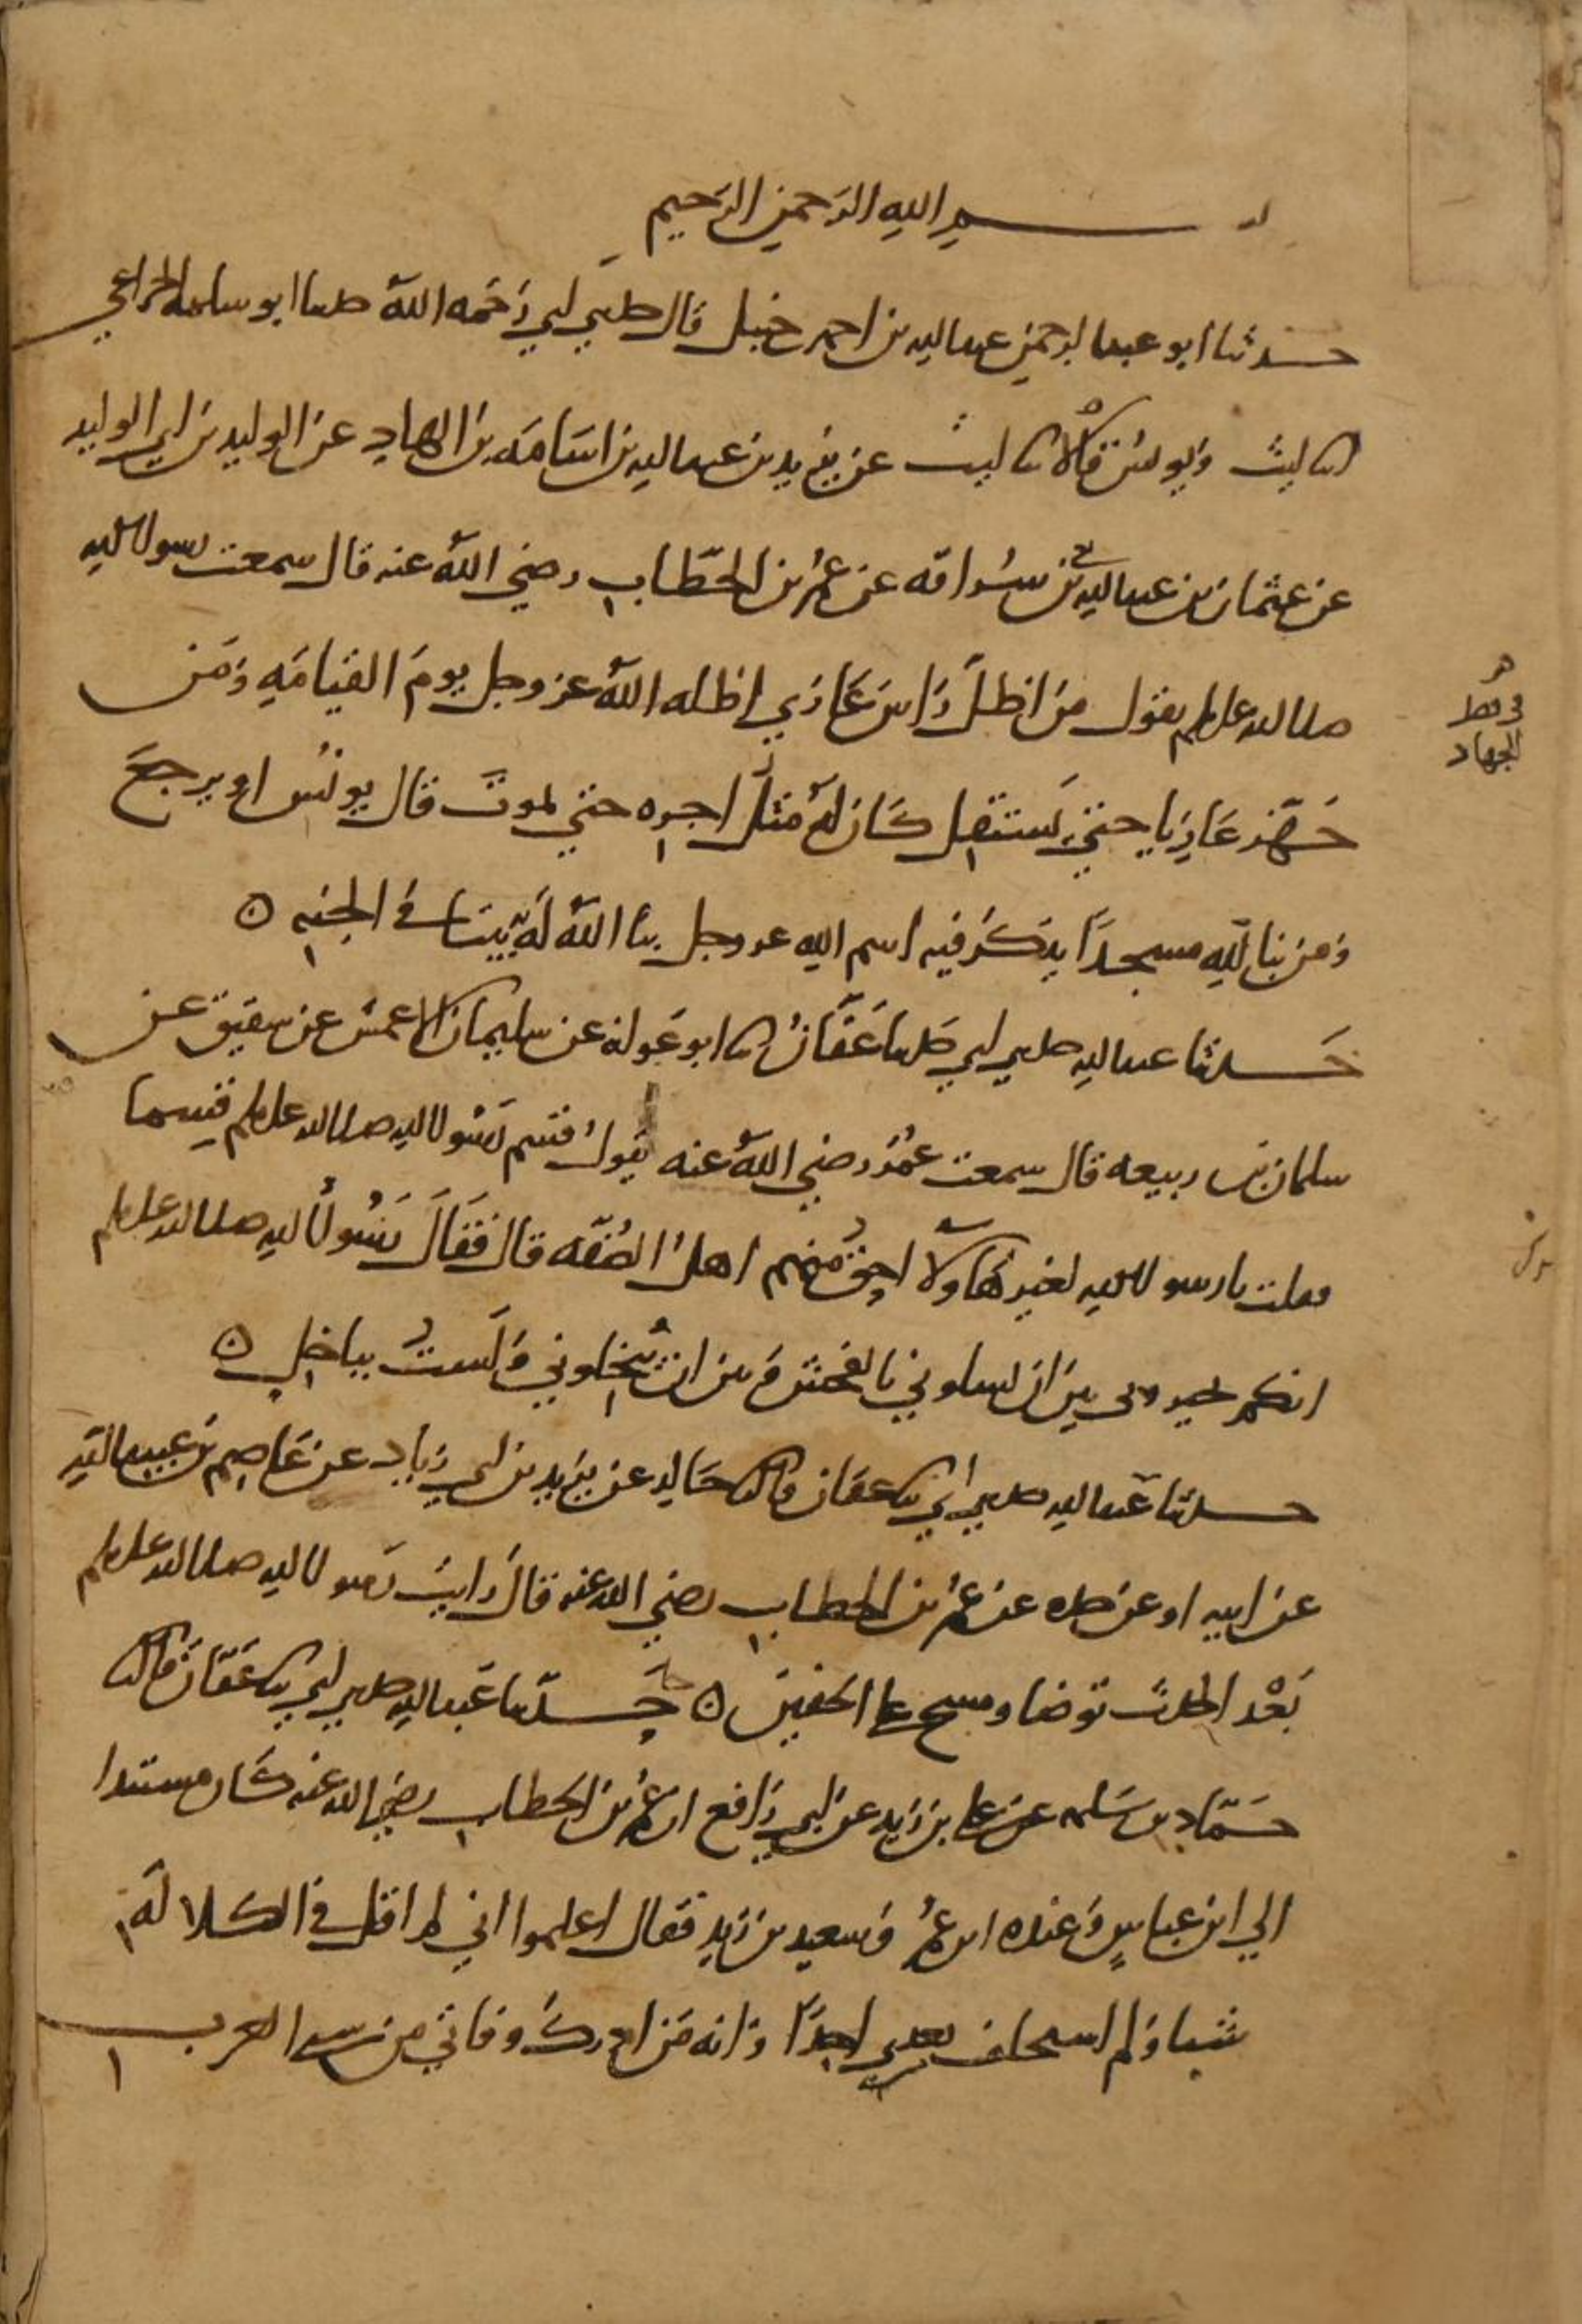 بسم الله الرحمن الرحيم
حدثنا ابو عبد الرحمن عبد الله بن احمد حنبل قال حدثني ابي رحمه الله حدثنا ابو سلمة الخزاعي
انا ليث ويونس قالا ثنا ليث عن يزيد بن عبد الله بن اسامة بن الهاد عن الوليد بن ابي الوليد
عن عثمان بن عبد الله بن سراقه عن عمر بن الخطاب رضي الله عنه قال سمعت رسول الله
صلى الله عليه وسلم يقول من اظل راس غازي اظله الله عز وجل يوم القيامه ومن
جهز غازيا حتي يستقل كان له مثل اجره حتي يموت قال يونس او يرجع
ومن بنا لله مسجدا يذكر فيه اسم الله عز وجل بنا الله له به بيتا في الجنه ه
حدثنا عبد الله حدثني ابي حدثنا عفان ثنا ابو عوانه عن سليمان الاعمش عن شقيق عن
سلمان بن ربيعه قال سمعت عمر رضي الله عنه يقول قسم رسول الله صلى الله عليه وسلم قسما
فقلت يا رسول الله لغير هاولا احق منهم اهل الصفه قال فقال رسول الله صلى الله عليه وسلم
انكم تخيروني بين ان تسلوني بالفحش وبين ان تبخلوني ولست بباخل ه
حدثنا عبد الله حدثني ابي ثنا عفان قال ثنا خالد عن يزيد بن ابي زياد عن عاصم بن عبيد الله
عن ابيه او عن جده عن عمر بن الخطاب رضي الله عنه قال رايت رسول الله صلى الله عليه وسلم
بعد الحدث توضا ومسح على الخفين ه حدثنا عبد الله حدثني ابي ثنا عفان قال ثنا
حماد بن سلمه عن علي بن زيد عن ابي رافع ان عمر بن الخطاب رضي الله عنه كان مستندا
الي ابن عباس وعنده ابن عمر وسعيد بن زيد فقال اعلموا اني لم اقل في الكلاله
شيا ولم استخلف بعدي احدا وانه من ادرك وفاتي من سبي العرب
في فضل
الجهاد